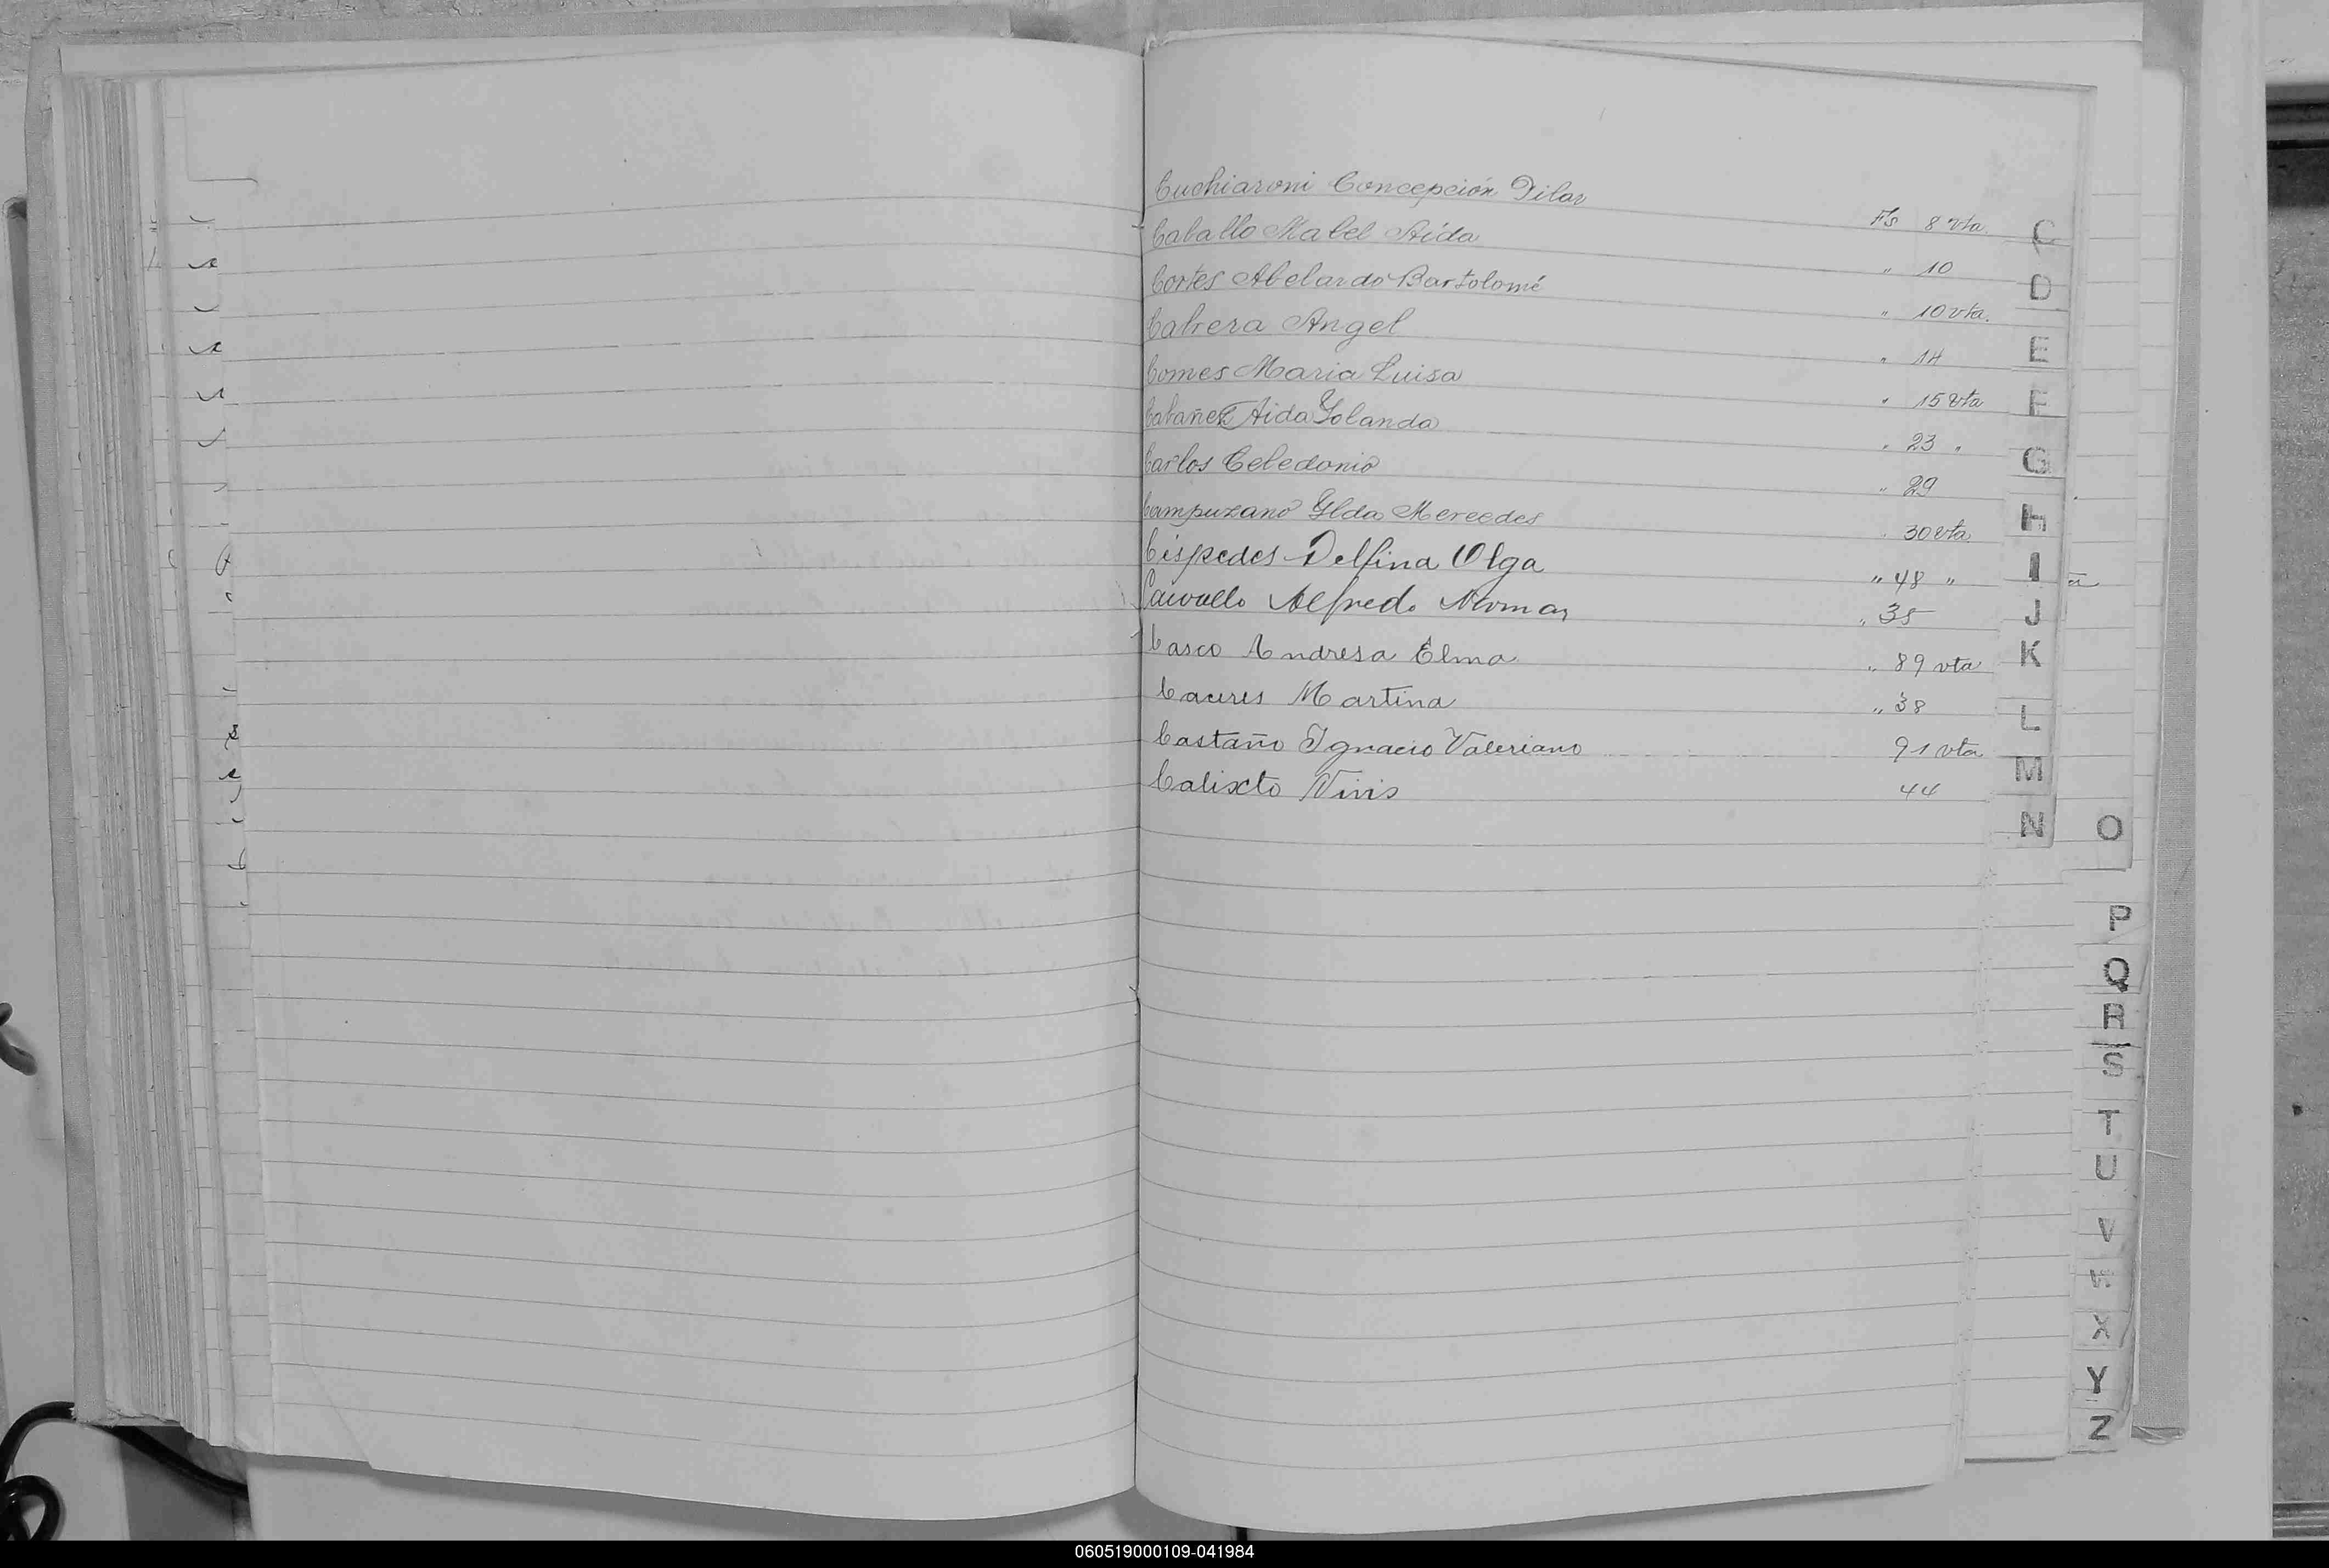 Cuchiaroni Concepción Pilar Fs 8 vta.
Caballo Mabel Aída " 10
Cortes Abelardo Bartolomé " 10 vta.
Cabrera Angel " 14
Comes Maria Luisa " 15 vta
Cabañez Aida Yolanda " 23 "
Carlos Celedonio " 29
Campuzano Ylda Mercedes " 30 vta.
Céspedes Delfina Olga " 48 "
Alfredo " 35
Casco Andresa Elma " 89 vta
Caceres Martina " 38
Castaño Ignacio Valeriano 91 vta
Calixto 44
C
D
E
F
G
H
I
J
K
L
M
N
O
P
Q
R
S
T
U
V
W
X
Y
Z
060519000109-041984